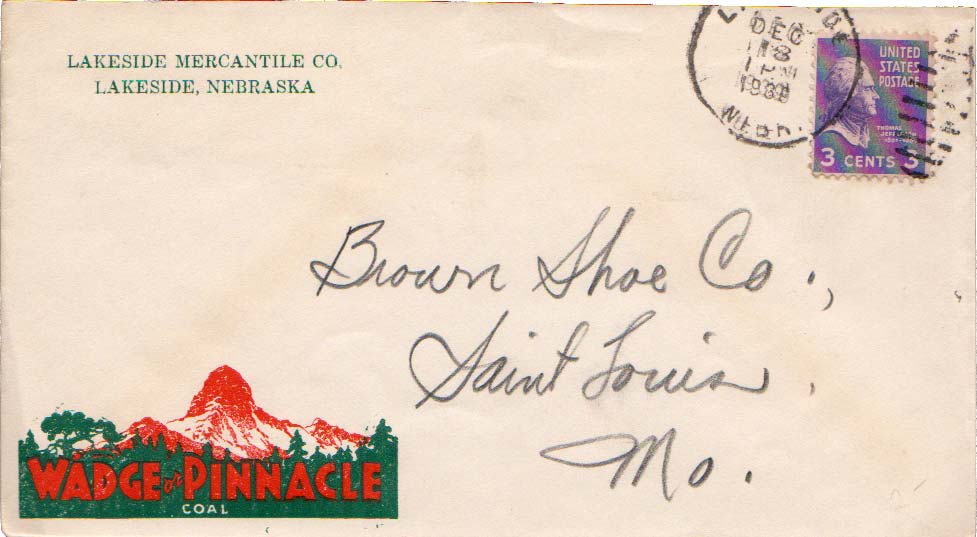 LAKESIDE MERCANTILE CO.
LAKESIDE, NEBRASKA
DEC
18
1 PM
NEBR.
UNITED
STATES
POSTAGE
THOMAS
JEFFERSON
3 CENTS 3
Brown Shoe Co.,
Saint Louis,
Mo.
WADGE or PINNACLE
COAL